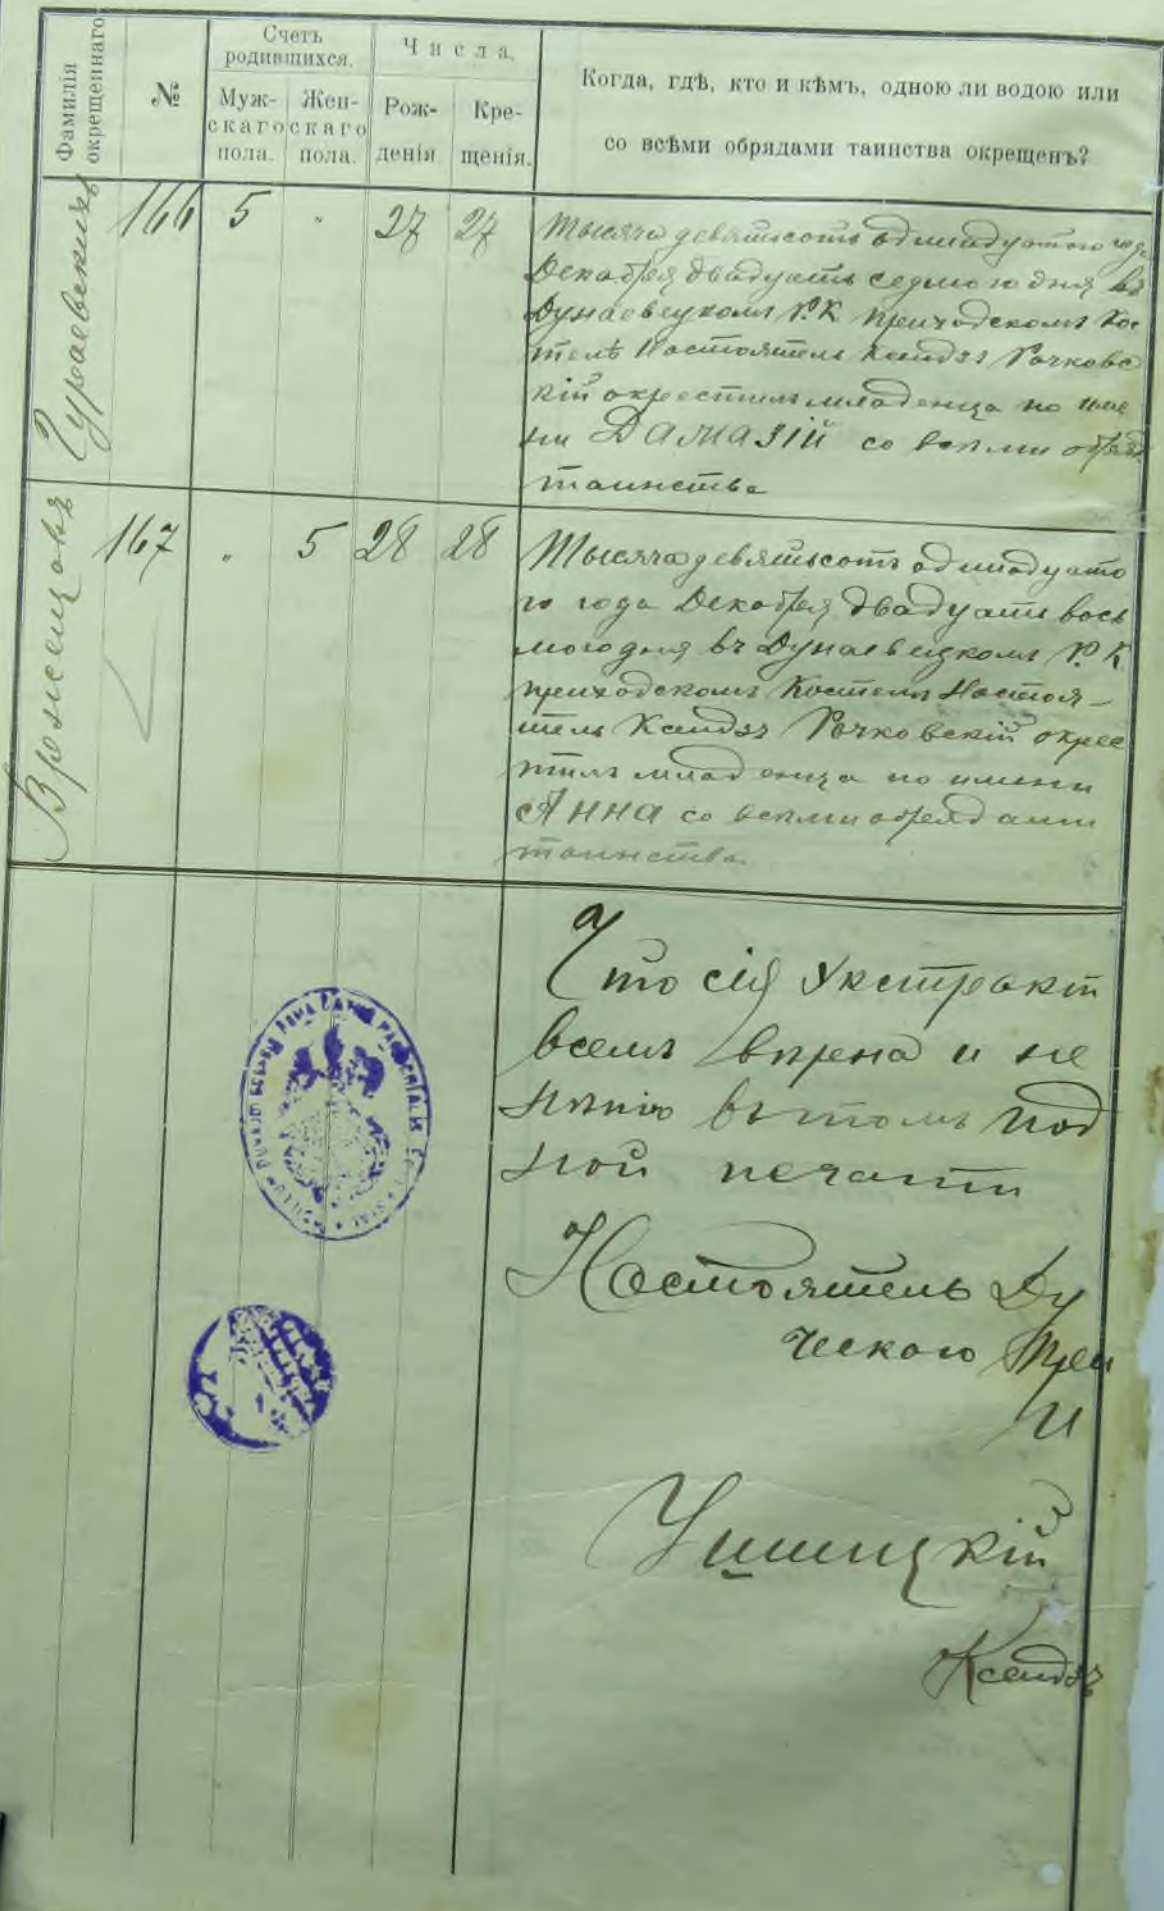 Фамилія окрещеннаго
№
Счетъ родившихся.
Муж-
скаго
пола.
Жен-
скаго
пола.
Числа.
Рож-
денія
Кре-
щенія.
Когда, гдѣ, кто и кѣмъ, одною ли водою или
со всѣми обрядами таинства окрещенъ?
166 5 " 27 27
Тысяча девятьсотъ одинадцатого года
Декабря двадцать седмого дня въ
Дунаевецкомъ Р. К приходскомъ Кос
телѣ Настоятель Ксендзъ Рочковс
кій окрестилъ младенца по име
ни ДАМАЗІЙ со всѣми обряд
таинства
Вржещовъ
167 " 5 28 28
Тысяча девятьсотъ одинадцато
го года Декабря двадцать вось
могодня въ Дунаевецкомъ Р. К
приходскомъ Костелѣ Настоя-
тель Ксендзъ Рочковскій окрес
тилъ младенца по имени
АННА со всѣми обрядами
таинства
Что сія Экстрактъ
всемъ вѣрна и не
въ томъ под
ной печати
Настоятель Ду
ческого При
и
Ушицкій
Ксендзъ